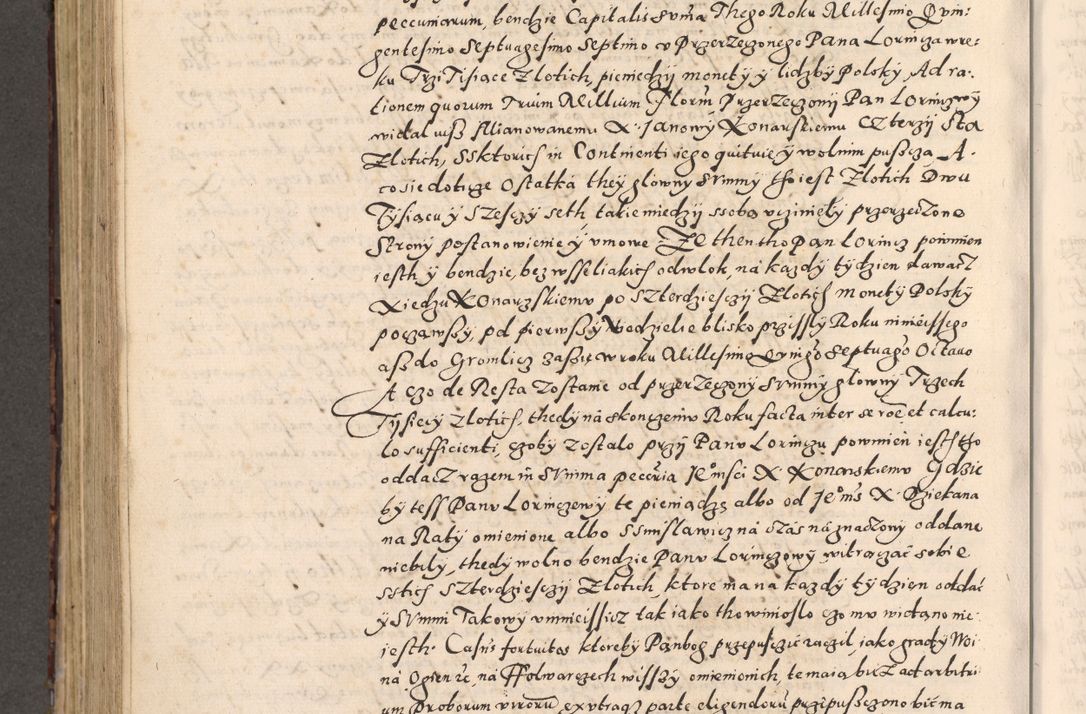 peccuniarum, bendzie Capitalis Suma Thego Roku Millesimo Quin:
gentesimo Septuagesimo Septimo v Przerzeczonego Pana Lorincza wre:
ku Trzi Tisiące Zlotich, pieniedzÿ monetÿ ÿ lidzbÿ Polskÿ, Ad ra:
tionem quorum Trium Millium Floren Przerzeczonÿ Pan Lorinczowÿ
widal iusz Mianowanemu X. Janowÿ Konarskiemu Czterzÿ Sta
Zlotich, Ssktorich in Continenti iego quituie ÿ wolnim puszcza A.
co sie doticze Ostatka theÿ glownÿ Summÿ tho iest Zlotich Dwu
Tÿsiącu ÿ Szesczÿ seth takie miedzÿ ssobą vczinielÿ przerzeczone
Stronÿ postanowienie ÿ vmowe. Ze then tho Pan Lorincz powinien
iesth ÿ bendzie, bez wsseliakich odwlok, na kazdÿ tÿdzien dawacz
Xiedzu Konarzskiemu po Szterdziesczÿ Zlotich monetÿ Polskÿ
począwszÿ, od pierwszÿ Niedzielie blisko przisslÿ Roku ninieissego
asz do Gromlicz zassię w roku Millesimo Quingo Septuago Octauo
A czo de Resta zostanie od przerzeczonÿ Summÿ glownÿ Trzech
Tÿsięcÿ Zlotich, thedÿ na skonczeniu Roku facta inter se roe et calcu:
lo sufficienti, czobÿ zostalo przÿ Panu Lorinczu powinien iesth tho
oddacz razem in Summa peccuia Je Msci X. Konarskiemu Gdzie
bÿ tess Panu Lorinczewÿ te pieniądze albo od Je Ms X. Dziekana
na Ratÿ omienione albo S Stanislawicz na czas naznaczonÿ oddane
niebilÿ, thedÿ wolno bendzie Panu Lorinczowÿ witrączać sobie
sstich Szterdziesczÿ Zlotich, ktore ma na kazdÿ tÿdzien oddać
ÿ Summ Takowÿ vmnieissicz tak iako tho winioslo czo mu widano nie
iesth. Casus fortuitos ktorebÿ Pan Bog przepuscic raczil, iako gradÿ Woi
na Ogien etc, na Ffolwarczech wisszÿ omienionich, te maią bicz ad arbitri
um Proborum virorum ex vtraq parte eligendoru przipusszono bic ma